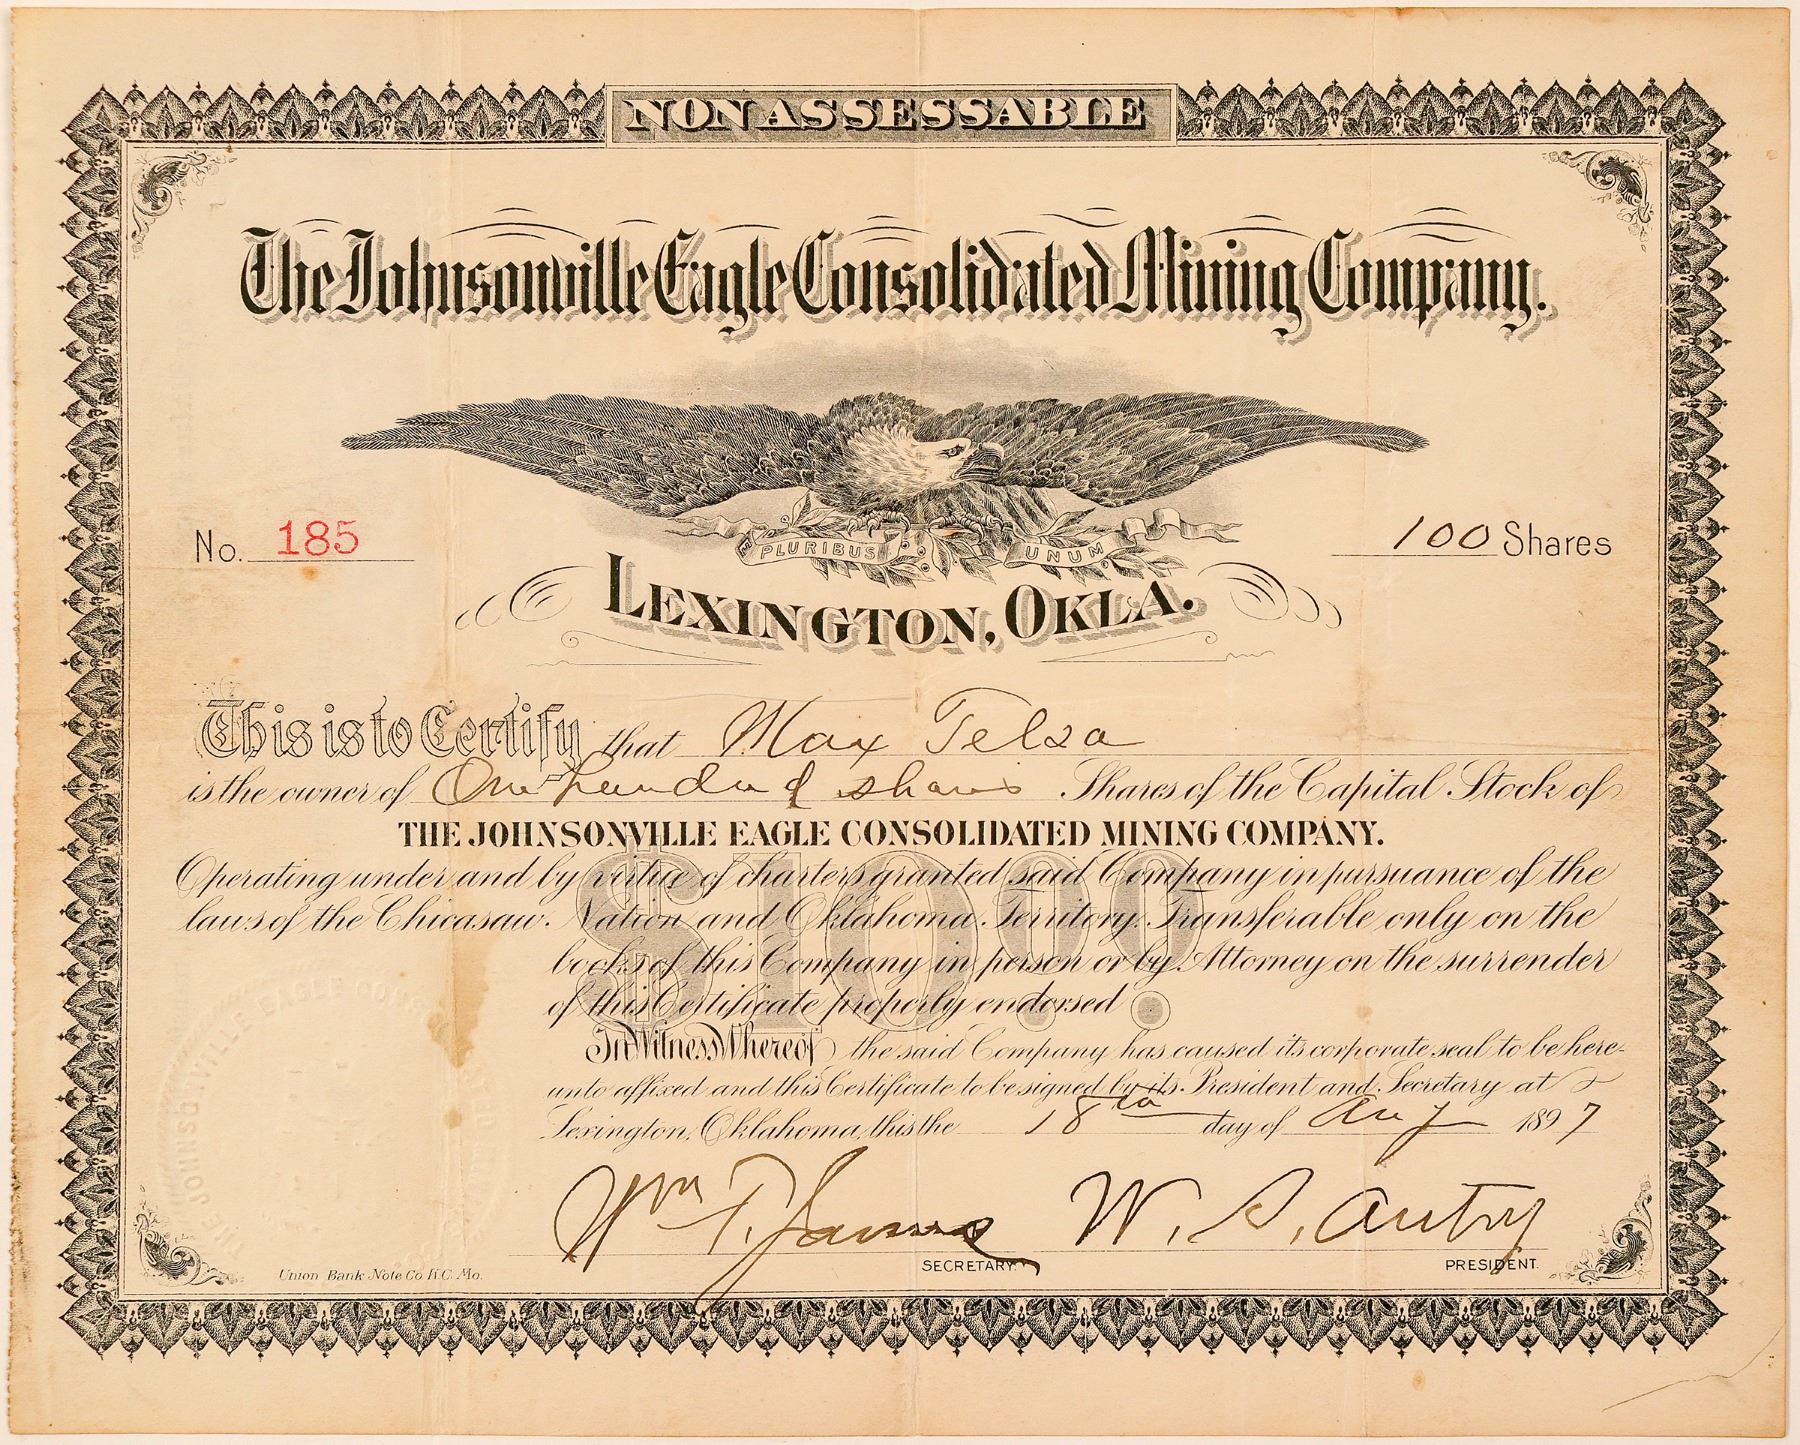 NON ASSESSABLE
The Johnsonville Eagle Consolidated Mining Company.
E PLURIBUS UNUM
No. 185
100 Shares
LEXINGTON, OKLA.
This is to Certify that Max Telza
is the owner of One hundred shares Shares of the Capital Stock of
THE JOHNSONVILLE EAGLE CONSOLIDATED MINING COMPANY.
$10.00
Operating under and by virtue of charters granted said Company in pursuance of the
laws of the Chicasaw Nation and Oklahoma Territory. Transferable only on the
books of this Company in person or by Attorney on the surrender
of this Certificate properly endorsed
In Witness Whereof the said Company has caused its corporate seal to be here-
unto affixed and this Certificate to be signed by its President and Secretary at
Lexington, Oklahoma, this the 18th day of Aug 1897
Wm T. James
W. S. Autry
SECRETARY
PRESIDENT.
Union Bank Note Co K.C. Mo.
THE JOHNSONVILLE EAGLE CONSOLIDATED